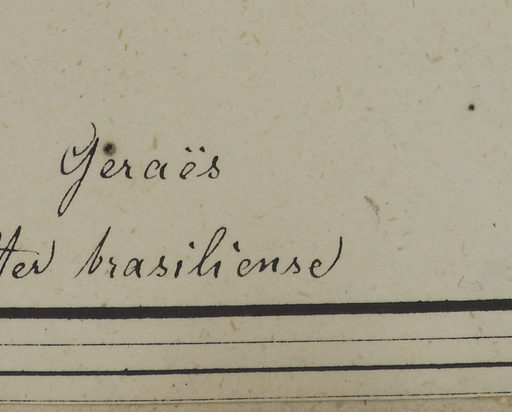 Geraës
brasiliense